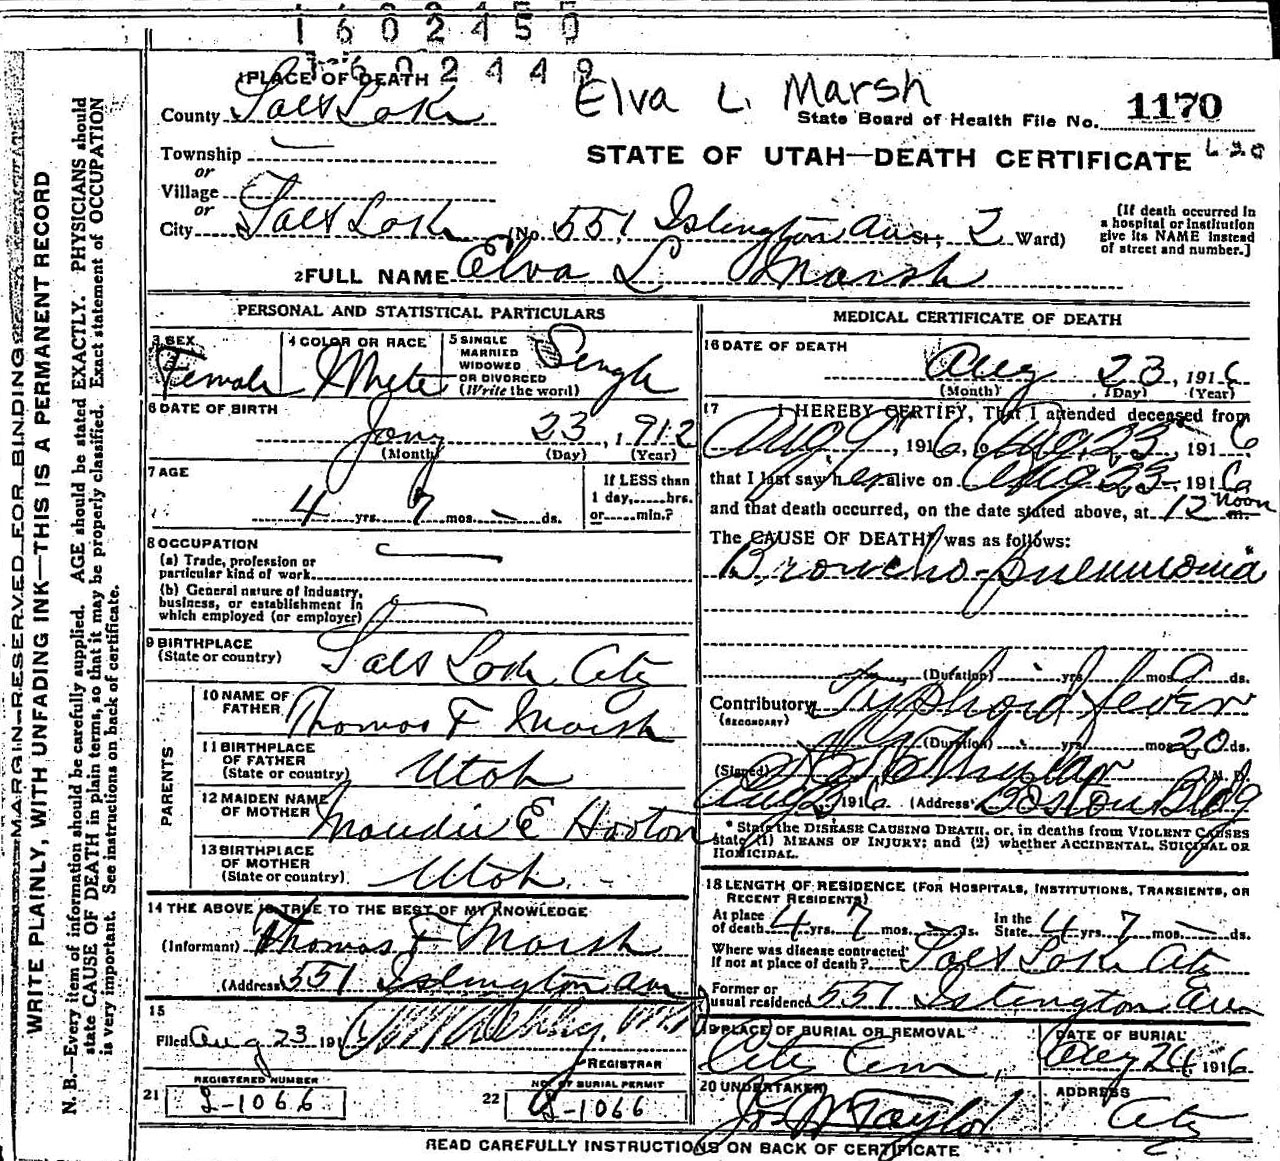 1602450
1602449
Elva L. Marsh
1 PLACE OF DEATH
County Salt Lake
State Board of Health File No. 1170
Township
or
Village
or
STATE OF UTAH—DEATH CERTIFICATE
City Salt Lake (No. 551 Islington Ave St.; 2 Ward)
[If death occurred in
a hospital or institution
give its NAME instead
of street and number.]
2 FULL NAME Elva L Marsh
PERSONAL AND STATISTICAL PARTICULARS
3 SEX
Female
4 COLOR OR RACE
White
5 SINGLE
MARRIED
WIDOWED
OR DIVORCED
(Write the word)
Single
6 DATE OF BIRTH
Jany 23, 1912
(Month) (Day) (Year)
7 AGE
4 yrs. 7 mos. — ds.
If LESS than
1 day,......hrs.
or......min.?
8 OCCUPATION
(a) Trade, profession or
particular kind of work
(b) General nature of industry,
business, or establishment in
which employed (or employer)
9 BIRTHPLACE
(State or country)
Salt Lake City
PARENTS
10 NAME OF
FATHER
Thomas F Marsh
11 BIRTHPLACE
OF FATHER
(State or country)
Utah
12 MAIDEN NAME
OF MOTHER
Maudie E Hooton
13 BIRTHPLACE
OF MOTHER
(State or country)
Utah
14 THE ABOVE IS TRUE TO THE BEST OF MY KNOWLEDGE
(Informant) Thomas F Marsh
(Address) 551 Islington Ave
15
Filed Aug 23 191
REGISTRAR
21 REGISTERED NUMBER
S-1066
22 NO. OF BURIAL PERMIT
S-1066
MEDICAL CERTIFICATE OF DEATH
16 DATE OF DEATH
Aug 23, 1916
(Month) (Day) (Year)
17 I HEREBY CERTIFY, That I attended deceased from
Aug 9, 1916, to Aug. 23, 1916
that I last saw her alive on Aug 23, 1916
and that death occurred, on the date stated above, at 12 Noon m.
The CAUSE OF DEATH* was as follows:
Broncho-pneumonia
(Duration) yrs. mos. ds.
Contributory Typhoid fever
(SECONDARY)
(Duration) yrs. mos. 20 ds.
(Signed) M. D.
1916 (Address) Boston Bldg
* State the DISEASE CAUSING DEATH, or, in deaths from VIOLENT CAUSES
state (1) MEANS OF INJURY; and (2) whether ACCIDENTAL, SUICIDAL OR
HOMICIDAL.
18 LENGTH OF RESIDENCE (FOR HOSPITALS, INSTITUTIONS, TRANSIENTS, OR
RECENT RESIDENTS)
At place
of death 4 yrs. 7 mos. — ds.
In the
State 4 yrs. 7 mos. — ds.
Where was disease contracted
If not at place of death? Salt Lake City
Former or
usual residence 551 Islington Ave
19 PLACE OF BURIAL OR REMOVAL
City Cem,
DATE OF BURIAL
Aug 24 1916
20 UNDERTAKER
Jos W Taylor
ADDRESS
City
READ CAREFULLY INSTRUCTIONS ON BACK OF CERTIFICATE
MARGIN—RESERVED—FOR—BINDING
WRITE PLAINLY, WITH UNFADING INK—THIS IS A PERMANENT RECORD
N. B.—Every item of information should be carefully supplied. AGE should be stated EXACTLY. PHYSICIANS should
state CAUSE OF DEATH in plain terms, so that it may be properly classified. Exact statement of OCCUPATION
is very important. See instructions on back of certificate.